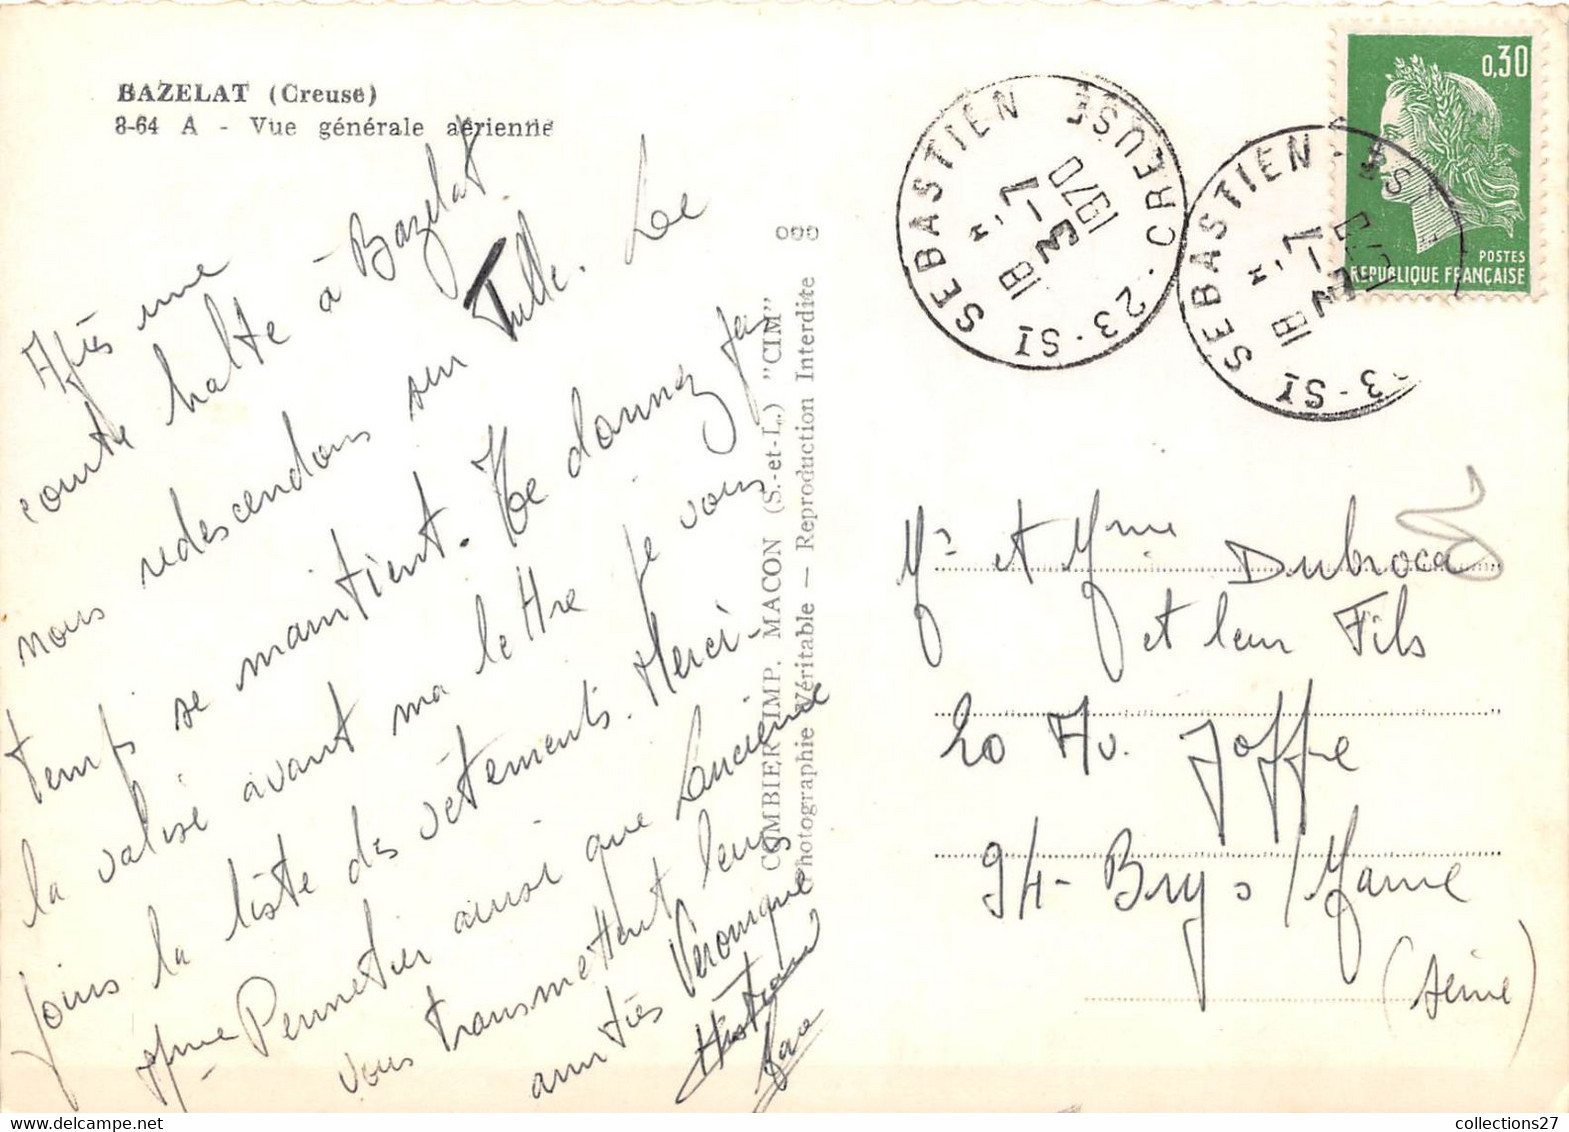 BAZELAT (Creuse)
8-64 A - Vue générale aérienne
Après une
courte halte à Bazelat
nous redescendons sur Tulle. Le
temps se maintient. Ne donnez pas
la valise avant ma lettre je vous
joins la liste des vêtements. Merci-
Mme Pennetier ainsi que Lancienne
vous transmettent leurs
amitiés Véronique
COMBIER IMP. MACON (S.-et-L.) "CIM"
Photographie Véritable — Reproduction Interdite
23-ST SEBASTIEN · CREUSE
18 H
7-3
1970
23-ST SEBASTIEN
18 H
7-3
0,30
POSTES
REPUBLIQUE FRANÇAISE
Mr et Mme Dubroca
et leur Fils
20 Av. Joffre
94-Bry s/Marne
(Seine)
collections27